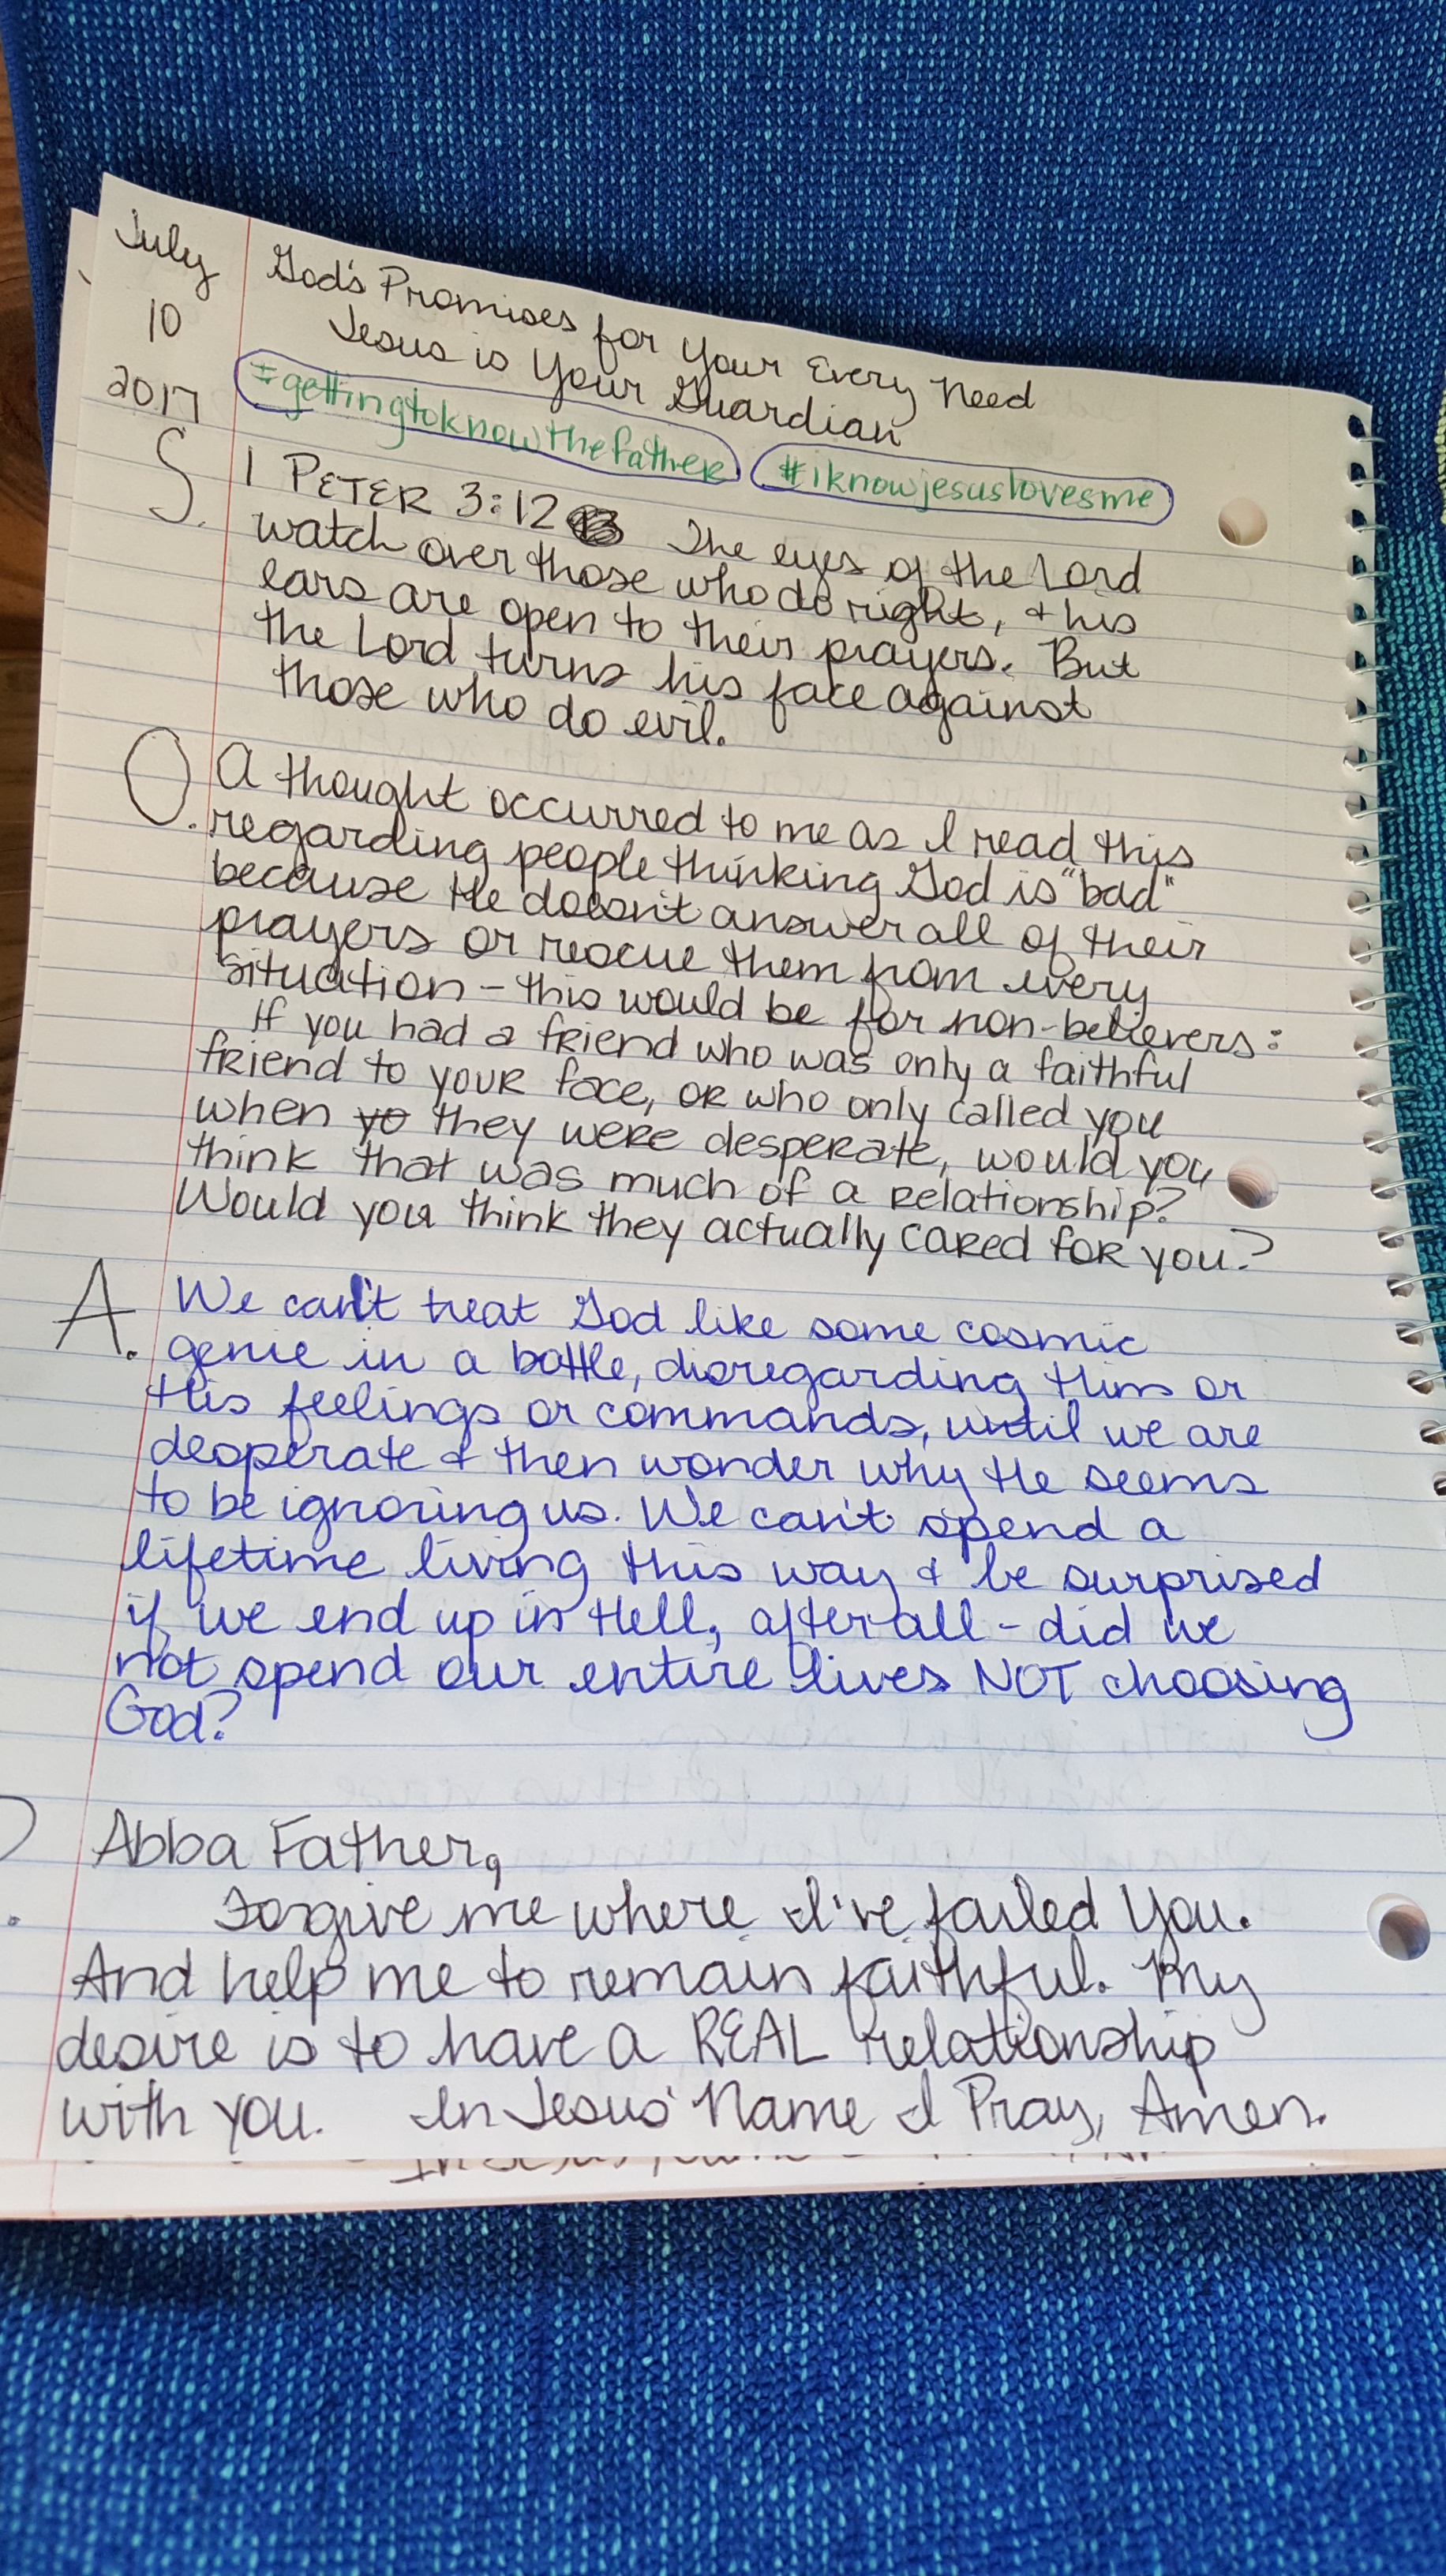 July
10
2017
God's Promises for Your Every Need
Jesus is Your Guardian
#gettingtoknowthefather #iknowjesuslovesme
S. 1 PETER 3:12 The eyes of the Lord
watch over those who do right, & his
ears are open to their prayers. But
the Lord turns his face against
those who do evil.
O. A thought occurred to me as I read this
regarding people thinking God is "bad"
because He doesn't answer all of their
prayers or rescue them from every
situation - this would be for non-believers:
If you had a friend who was only a faithful
friend to your face, or who only called you
when yo they were desperate, would you
think that was much of a relationship?
Would you think they actually cared for you?
A. We can't treat God like some cosmic
genie in a bottle, disregarding Him or
His feelings or commands, until we are
desperate & then wonder why He seems
to be ignoring us. We can't spend a
lifetime living this way & be surprised
if we end up in Hell, after all - did we
not spend our entire lives NOT choosing
God?
Abba Father,
Forgive me where I've failed You.
And help me to remain faithful. My
desire is to have a REAL relationship
with you. In Jesus' Name I Pray, Amen.